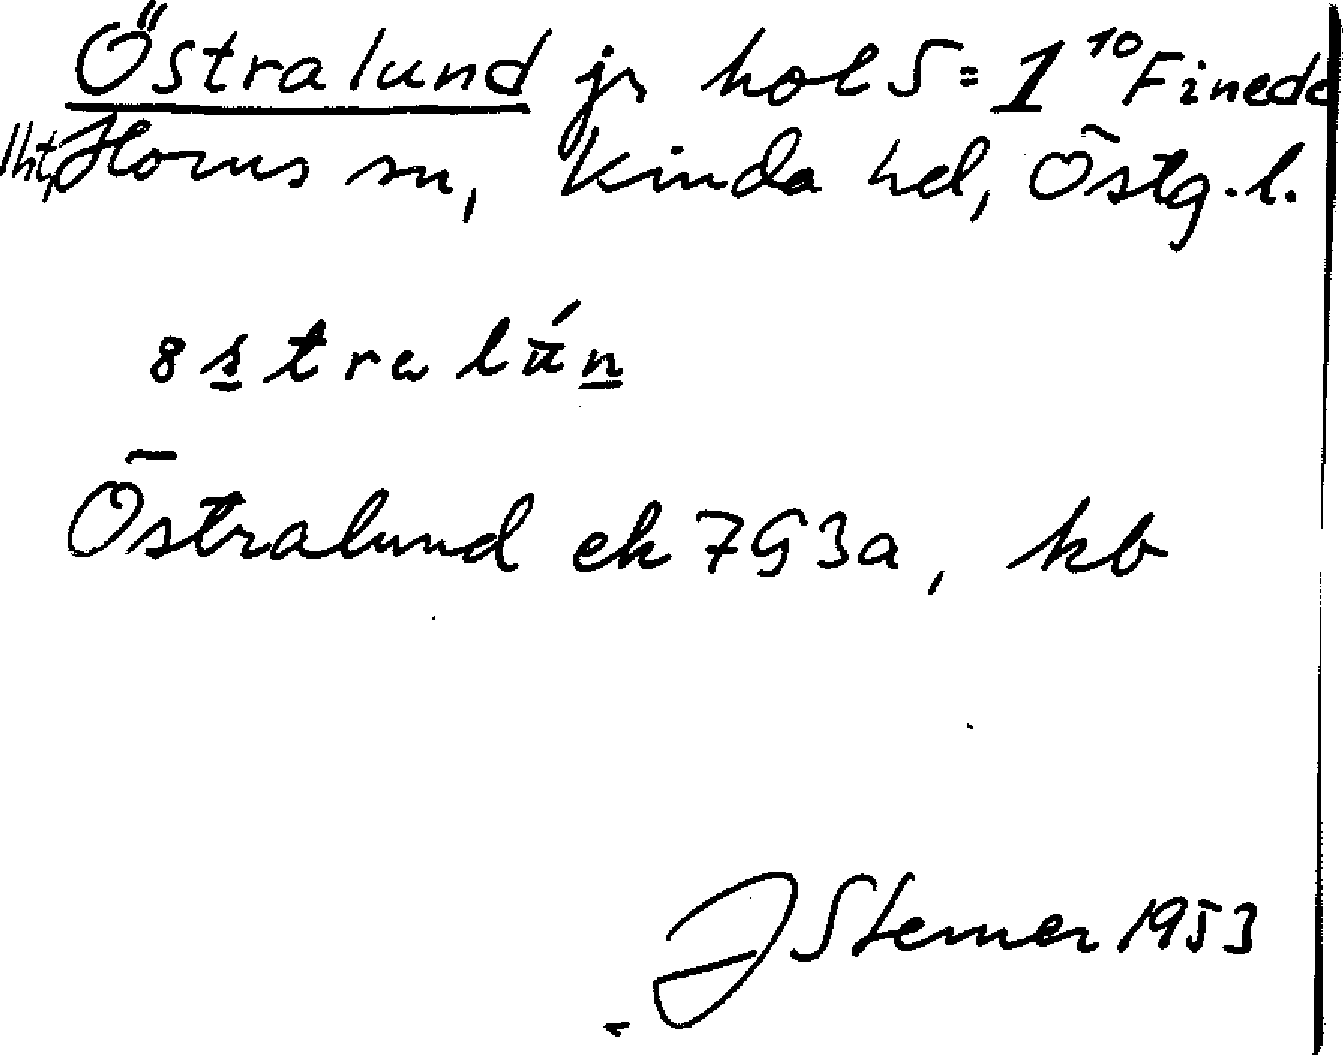 Östralund js hol 5 = 1 10 Finede
lht, Horns sn, Kinda hd, Östg. l.
8stralún
Östralund ek 7G3a, kb
J Sterner 1953